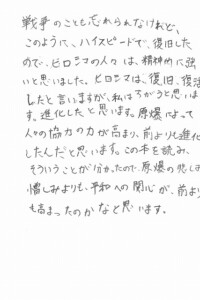 戦争のことも忘れられなけれど、
このように、ハイスピードで、復旧した
ので、ヒロシマの人々は、精神的に強
いと思いました。ヒロシマは、復旧、復活
したと言いますが、私はちがうと思いま
す。進化したと思います。原爆によって
人々の協力の力が高まり、前よりも進化
したんだと思います。この本を読み、
そういうことが分かったので、原爆の悲しみ
憎しみよりも、平和への関心が、前より
も高まったのかなと思います。